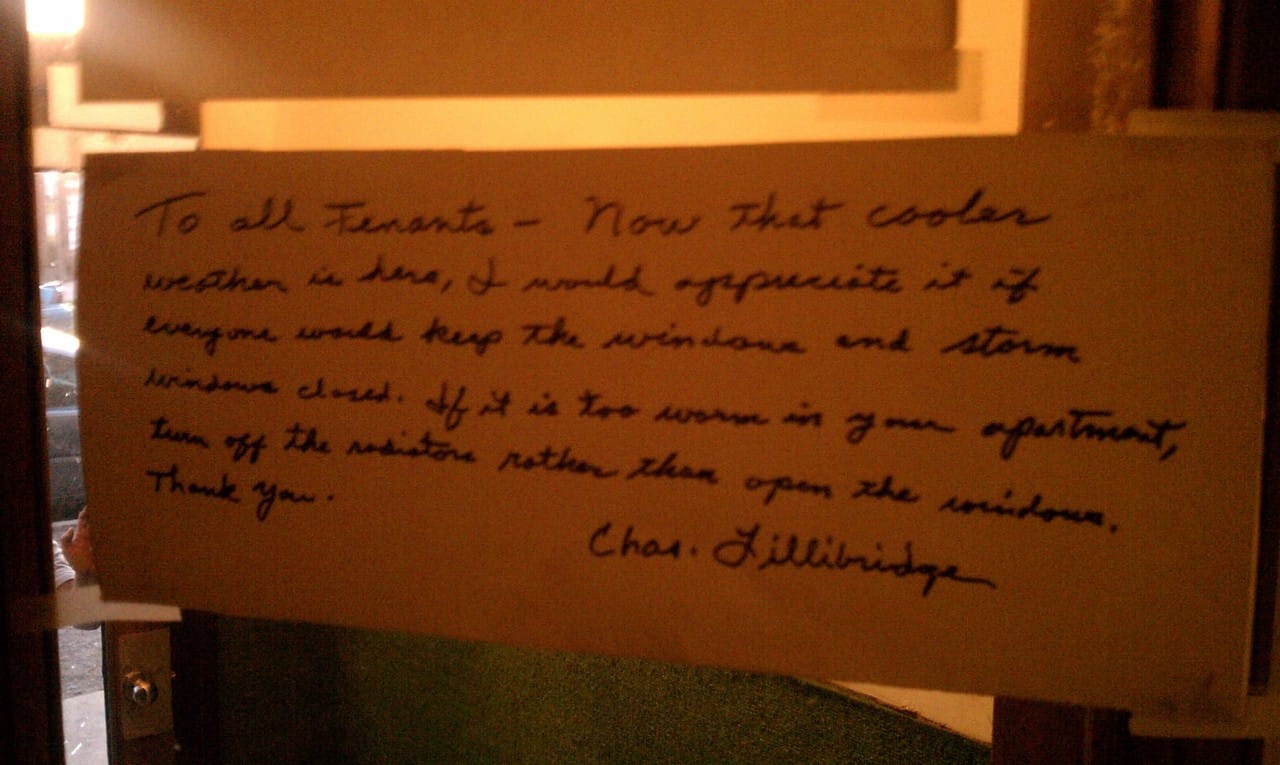 To all Tenants - Now that cooler
weather is here, I would appreciate it if
everyone would keep the windows and storm
windows closed. If it is too warm in your apartment,
turn off the radiators rather than open the windows.
Thank you.
Chas. Lillibridge